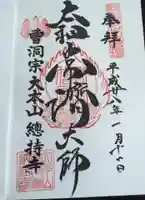 奉拝
平成廿八年一月十六日
太祖常濟大師
曹洞宗大本山總持寺